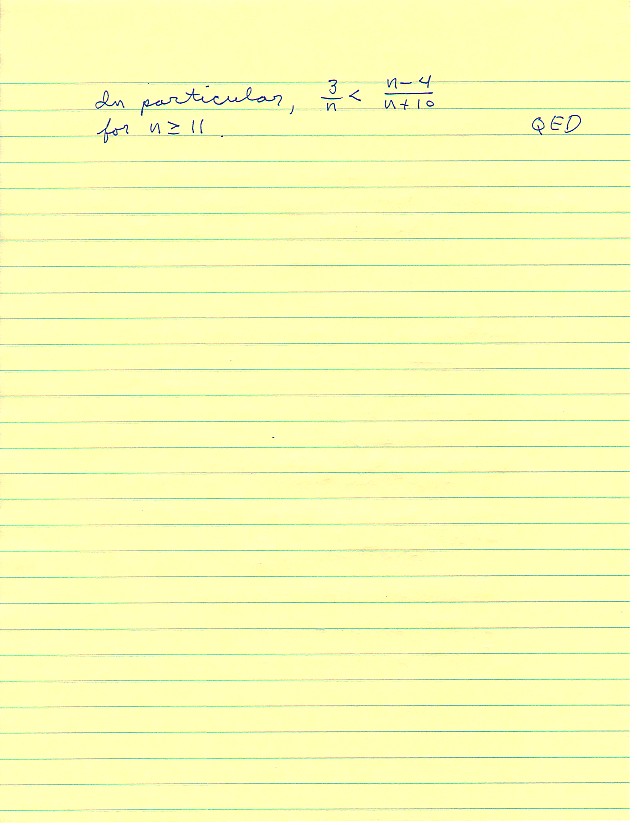 In particular, 3/n < n-4/n+10
for n ≥ 11. QED